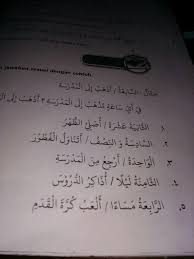 jawaban sesuai dengan contoh.
مثال: السَّابِعَةُ / أَذْهَبُ إِلَى الْمَدْرَسَةِ
فِي أَيِّ سَاعَةٍ تَذْهَبُ إِلَى الْمَدْرَسَةِ؟ أَذْهَبُ إِلَى
١. الثَّانِيَةَ عَشْرَةَ / أُصَلِّي الظُّهْرَ
٢. السَّادِسَةُ وَ النِّصْفُ / أَتَنَاوَلُ الْفَطُوْرَ
٣. الْوَاحِدَةُ / أَرْجِعُ مِنَ الْمَدْرَسَةِ
٤. الثَّامِنَةُ لَيْلًا / أُذَاكِرُ الدُّرُوْسَ
٥. الرَّابِعَةُ مَسَاءً / أَلْعَبُ كُرَةَ الْقَدَمِ